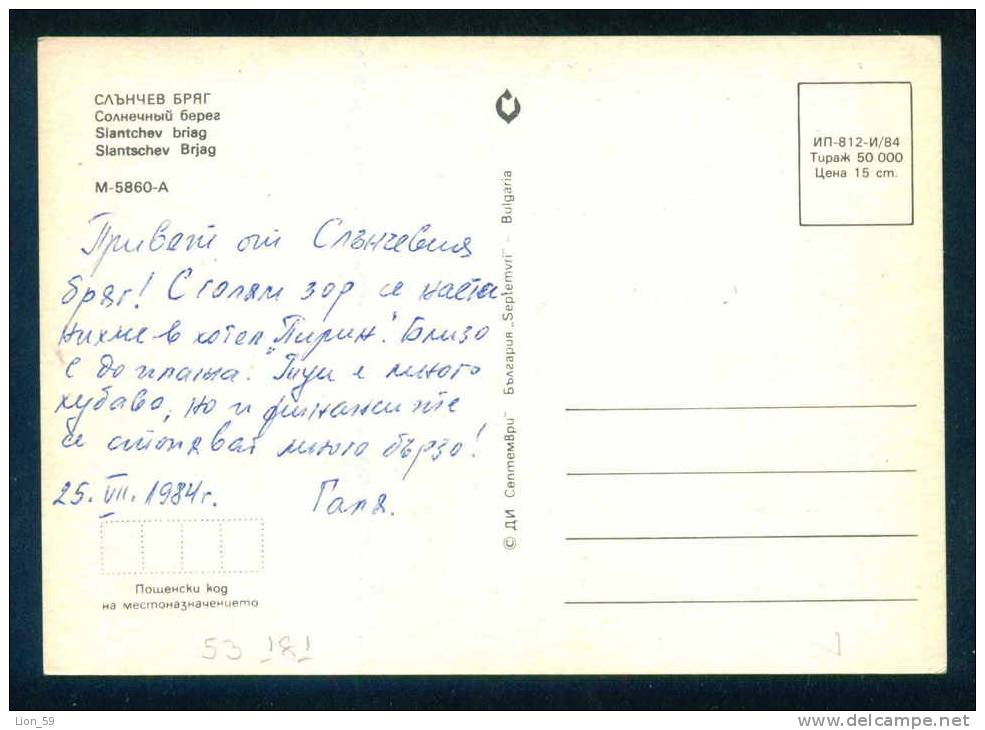 СЛЪНЧЕВ БРЯГ
Солнечный берег
Slantchev briag
Slantschev Brjag
М-5860-А
Привет от Слънчевия
бряг! С голям зор се наста-
нихме в хотел "Пирин". Близо
е до плажа. Тук е много
хубаво, но и финансите
се стопяват много бързо!
25. VII. 1984 г. Галя.
Пощенски код
на местоназначението
53 181
© ДИ „Септември" България „Septemvri" – Bulgaria
ИП-812-И/84
Тираж 50 000
Цена 15 ст.
Lion_59
www.delcampe.net